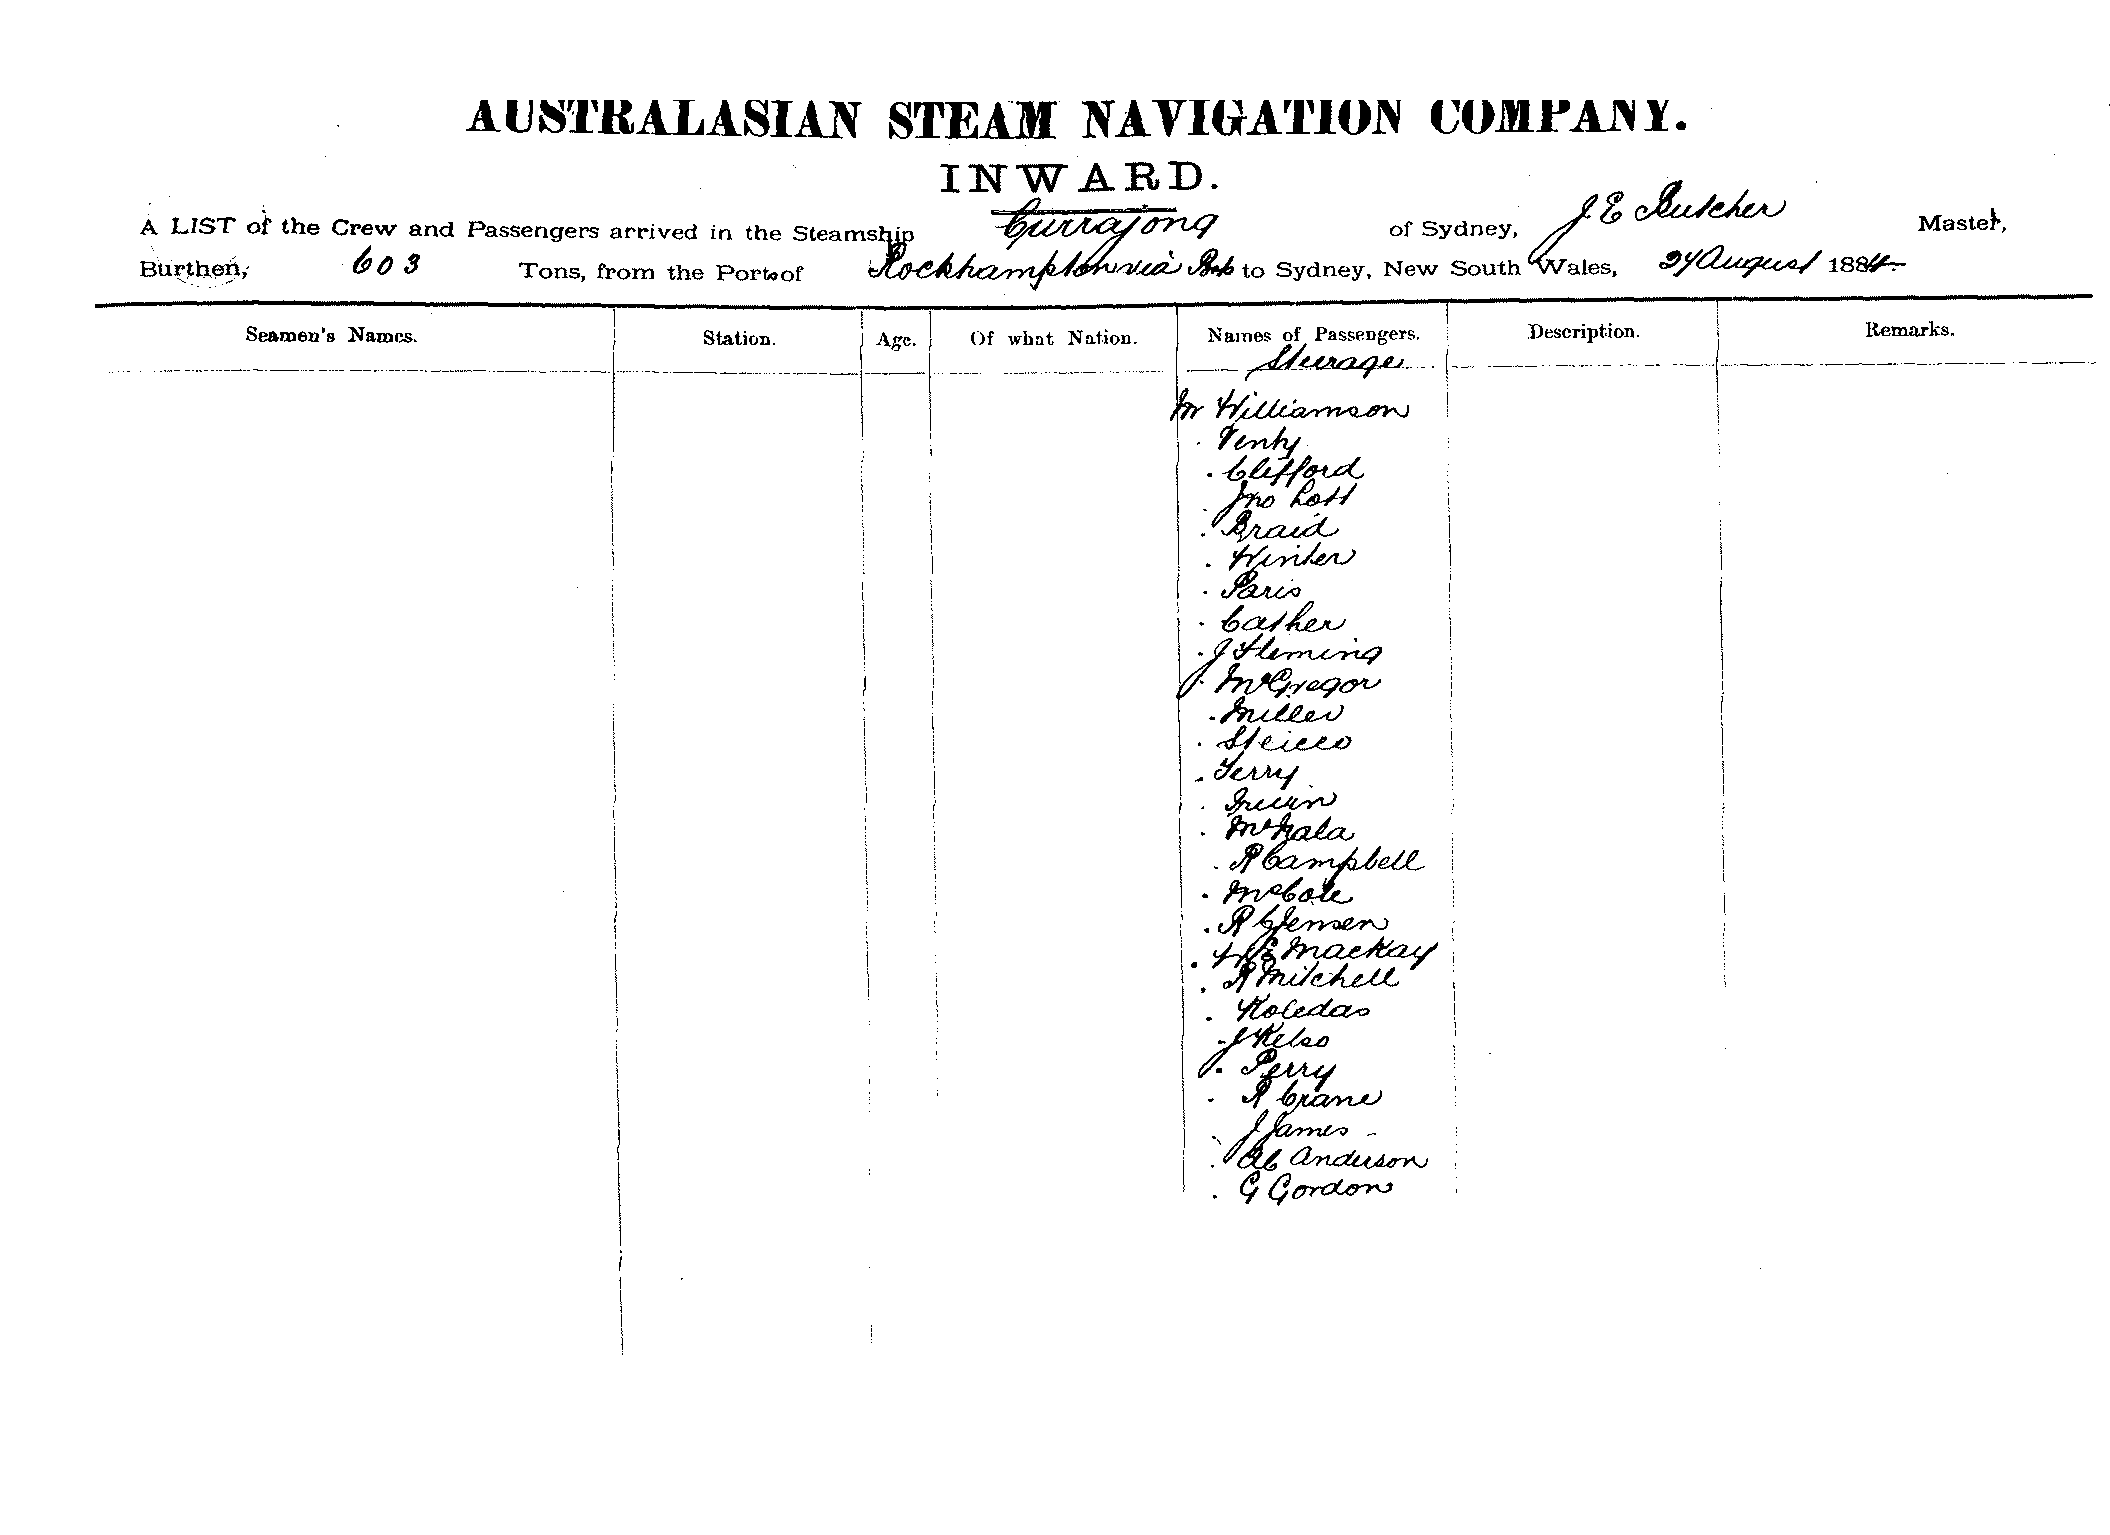 AUSTRALASIAN STEAM NAVIGATION COMPANY.
INWARD.
A LIST of the Crew and Passengers arrived in the Steamship Currajong of Sydney, J E Butcher Master,
Burthen, 603 Tons, from the Port of Rockhampton via to Sydney, New South Wales, 24 August 1884
Seamen's Names. Station. Age. Of what Nation. Names of Passengers. Description. Remarks.
Steerage
Mr Williamson
. Venty
. Clifford
. Jno Lott
. Braid
. Winter
. Paris
. Cather
. J Fleming
. McGregor
. Miller
. Terry
. R Campbell
. McCole
. R C Jensen
. Mackay
. R Mitchell
. Koledas
. J Kelso
. Perry
. R Crane
. J James -
. Anderson
. G Gordon